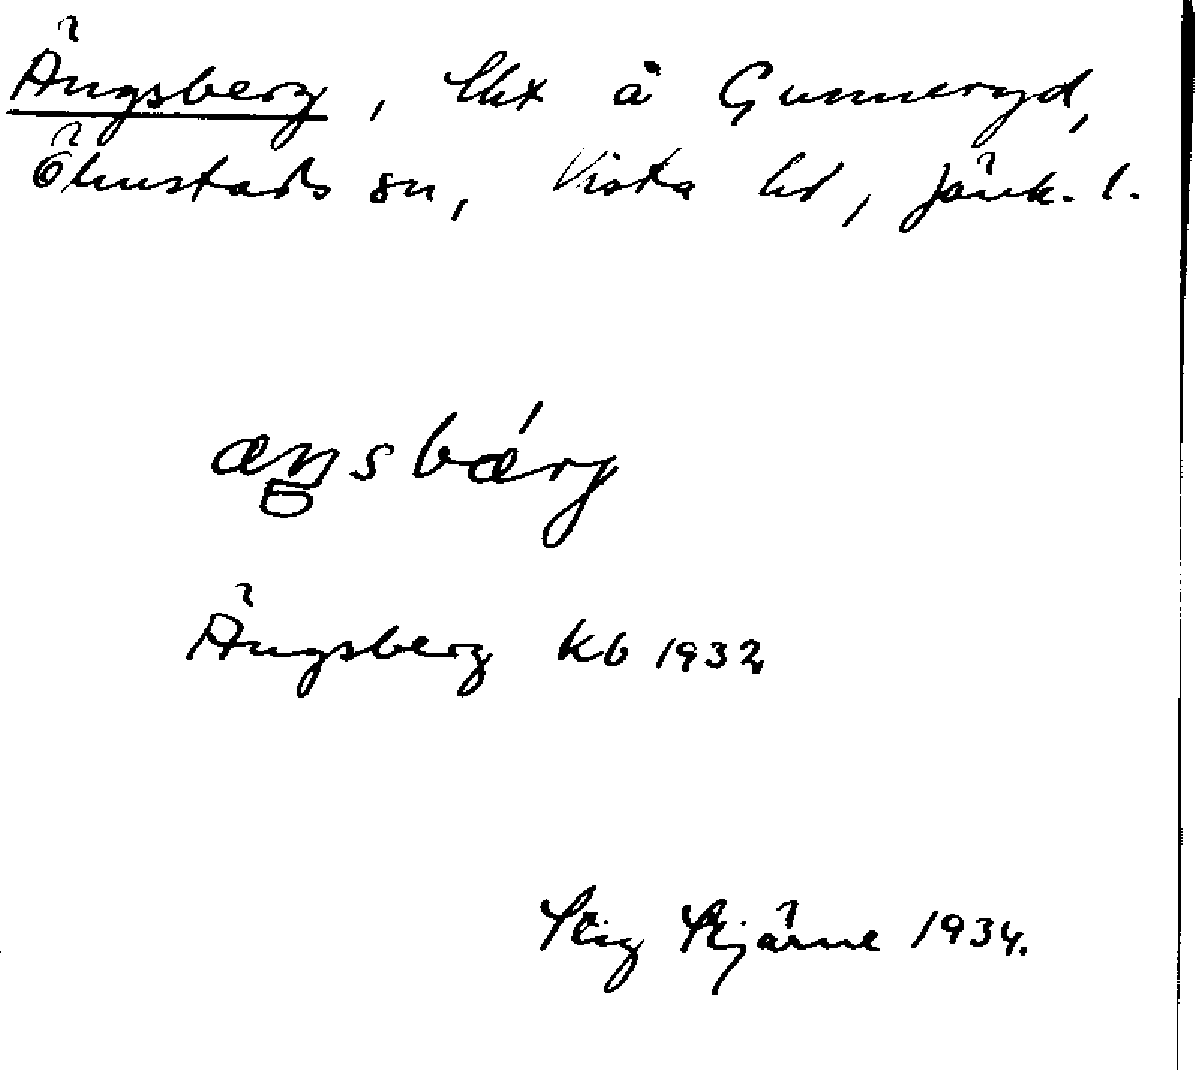 Ängsberg, lht å Gunneryd,
Ölmstads sn, Vista hd, Jönk. l.
æŋsbǽrj
Ängsberg Kb 1932
Stig Stjärne 1934.